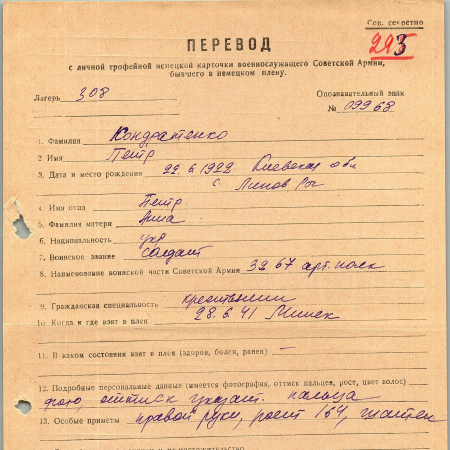 Сов. секретно
293
ПЕРЕВОД
с личной трофейной немецкой карточки военнослужащего Советской Армии,
бывшего в немецком плену.
Лагерь 308
Опознавательный знак
№ 09968
1. Фамилия Кондратенко
2 Имя Петр
3. Дата и место рождения 22.6.1922 Киевская обл
с. Липов Рог
4. Имя отца Петр
5. Фамилия матери Анна
6. Национальность укр
7. Воинское звание солдат
8. Наименование воинской части Советской Армии 3967 арт. полк
9. Гражданская специальность крестьянин
10. Когда и где взят в плен 28.6.41 Минск
11. В каком состоянии взят в плен (здоров, болен, ранен) —
12. Подробные персональные данные (имеется фотография, оттиск пальцев, рост, цвет волос)
фото, оттиск указат. пальца
13. Особые приметы правой руки, рост 164,